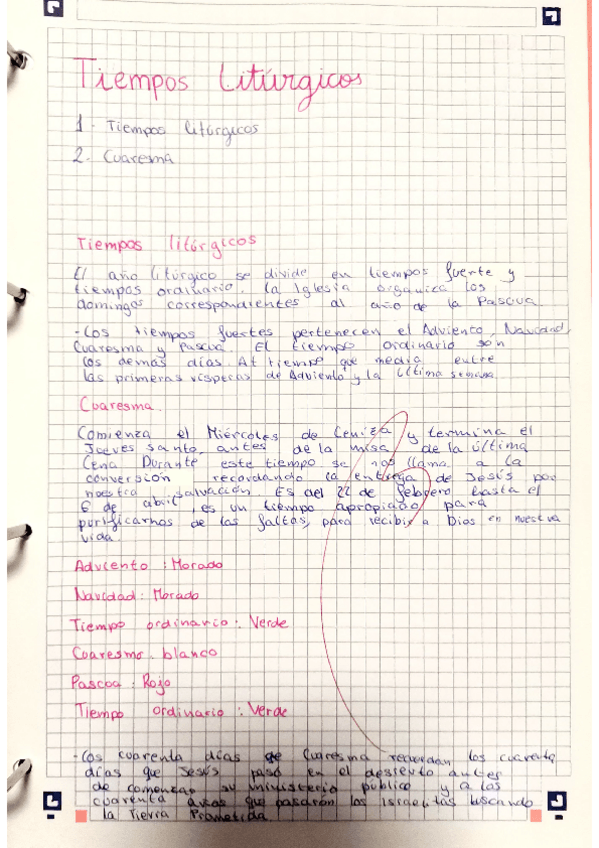 Tiempos Litúrgicos
1- Tiempos litúrgicos
2- Cuaresma
Tiempos litúrgicos
El año litúrgico se divide en tiempos fuerte y
tiempos ordinario. La Iglesia organiza los
domingos correspondientes al año de la Pascua.
-Los tiempos fuertes pertenecen el Adviento, Navidad,
Cuaresma y Pascua. El tiempo ordinario son
los demás días. At tiempo que media entre
las primeras vísperas de Adviento y la última semana.
Cuaresma.
Comienza el Miércoles de Ceniza y termina el
Jueves santo, antes de la misa de la última
Cena Durante este tiempo se nos llama a la
conversión recordando la entrega de Jesús por
nuestra salvación. Es del 22 de febrero hasta el
6 de abril, es un tiempo apropiado para
purificarnos de las faltas, para recibir a Dios en nuestra
vida.
Adviento : Morado
Navidad : Morado
Tiempo ordinario : Verde
Cuaresma. blanco
Pascoa : Rojo
Tiempo ordinario : Verde
-Los cuarenta días de Cuaresma recuerdan los cuarenta
días que Jesús pasó en el desierto antes
de comenzar su ministerio público y a los
cuarenta años que pasarón los israelitas buscando
la Tierra Prometida.